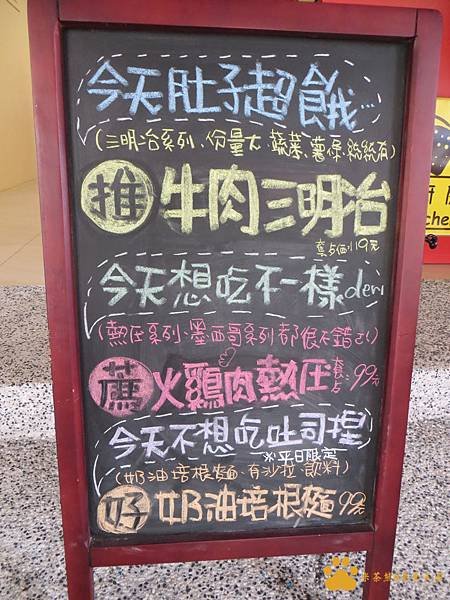 今天肚子超餓...
(三明治系列、份量大、蔬菜、薯條、統統有)
推 牛肉三明治
套點價119元
今天想吃不一樣 deri
(熱压系列、墨西哥系列都很不錯ㄛ!)
薦 火鷄肉熱压 套点 99元
今天不想吃吐司捏
※平日限定
(奶油培根麵、有沙拉、飲料)
好 奶油培根麵 99元